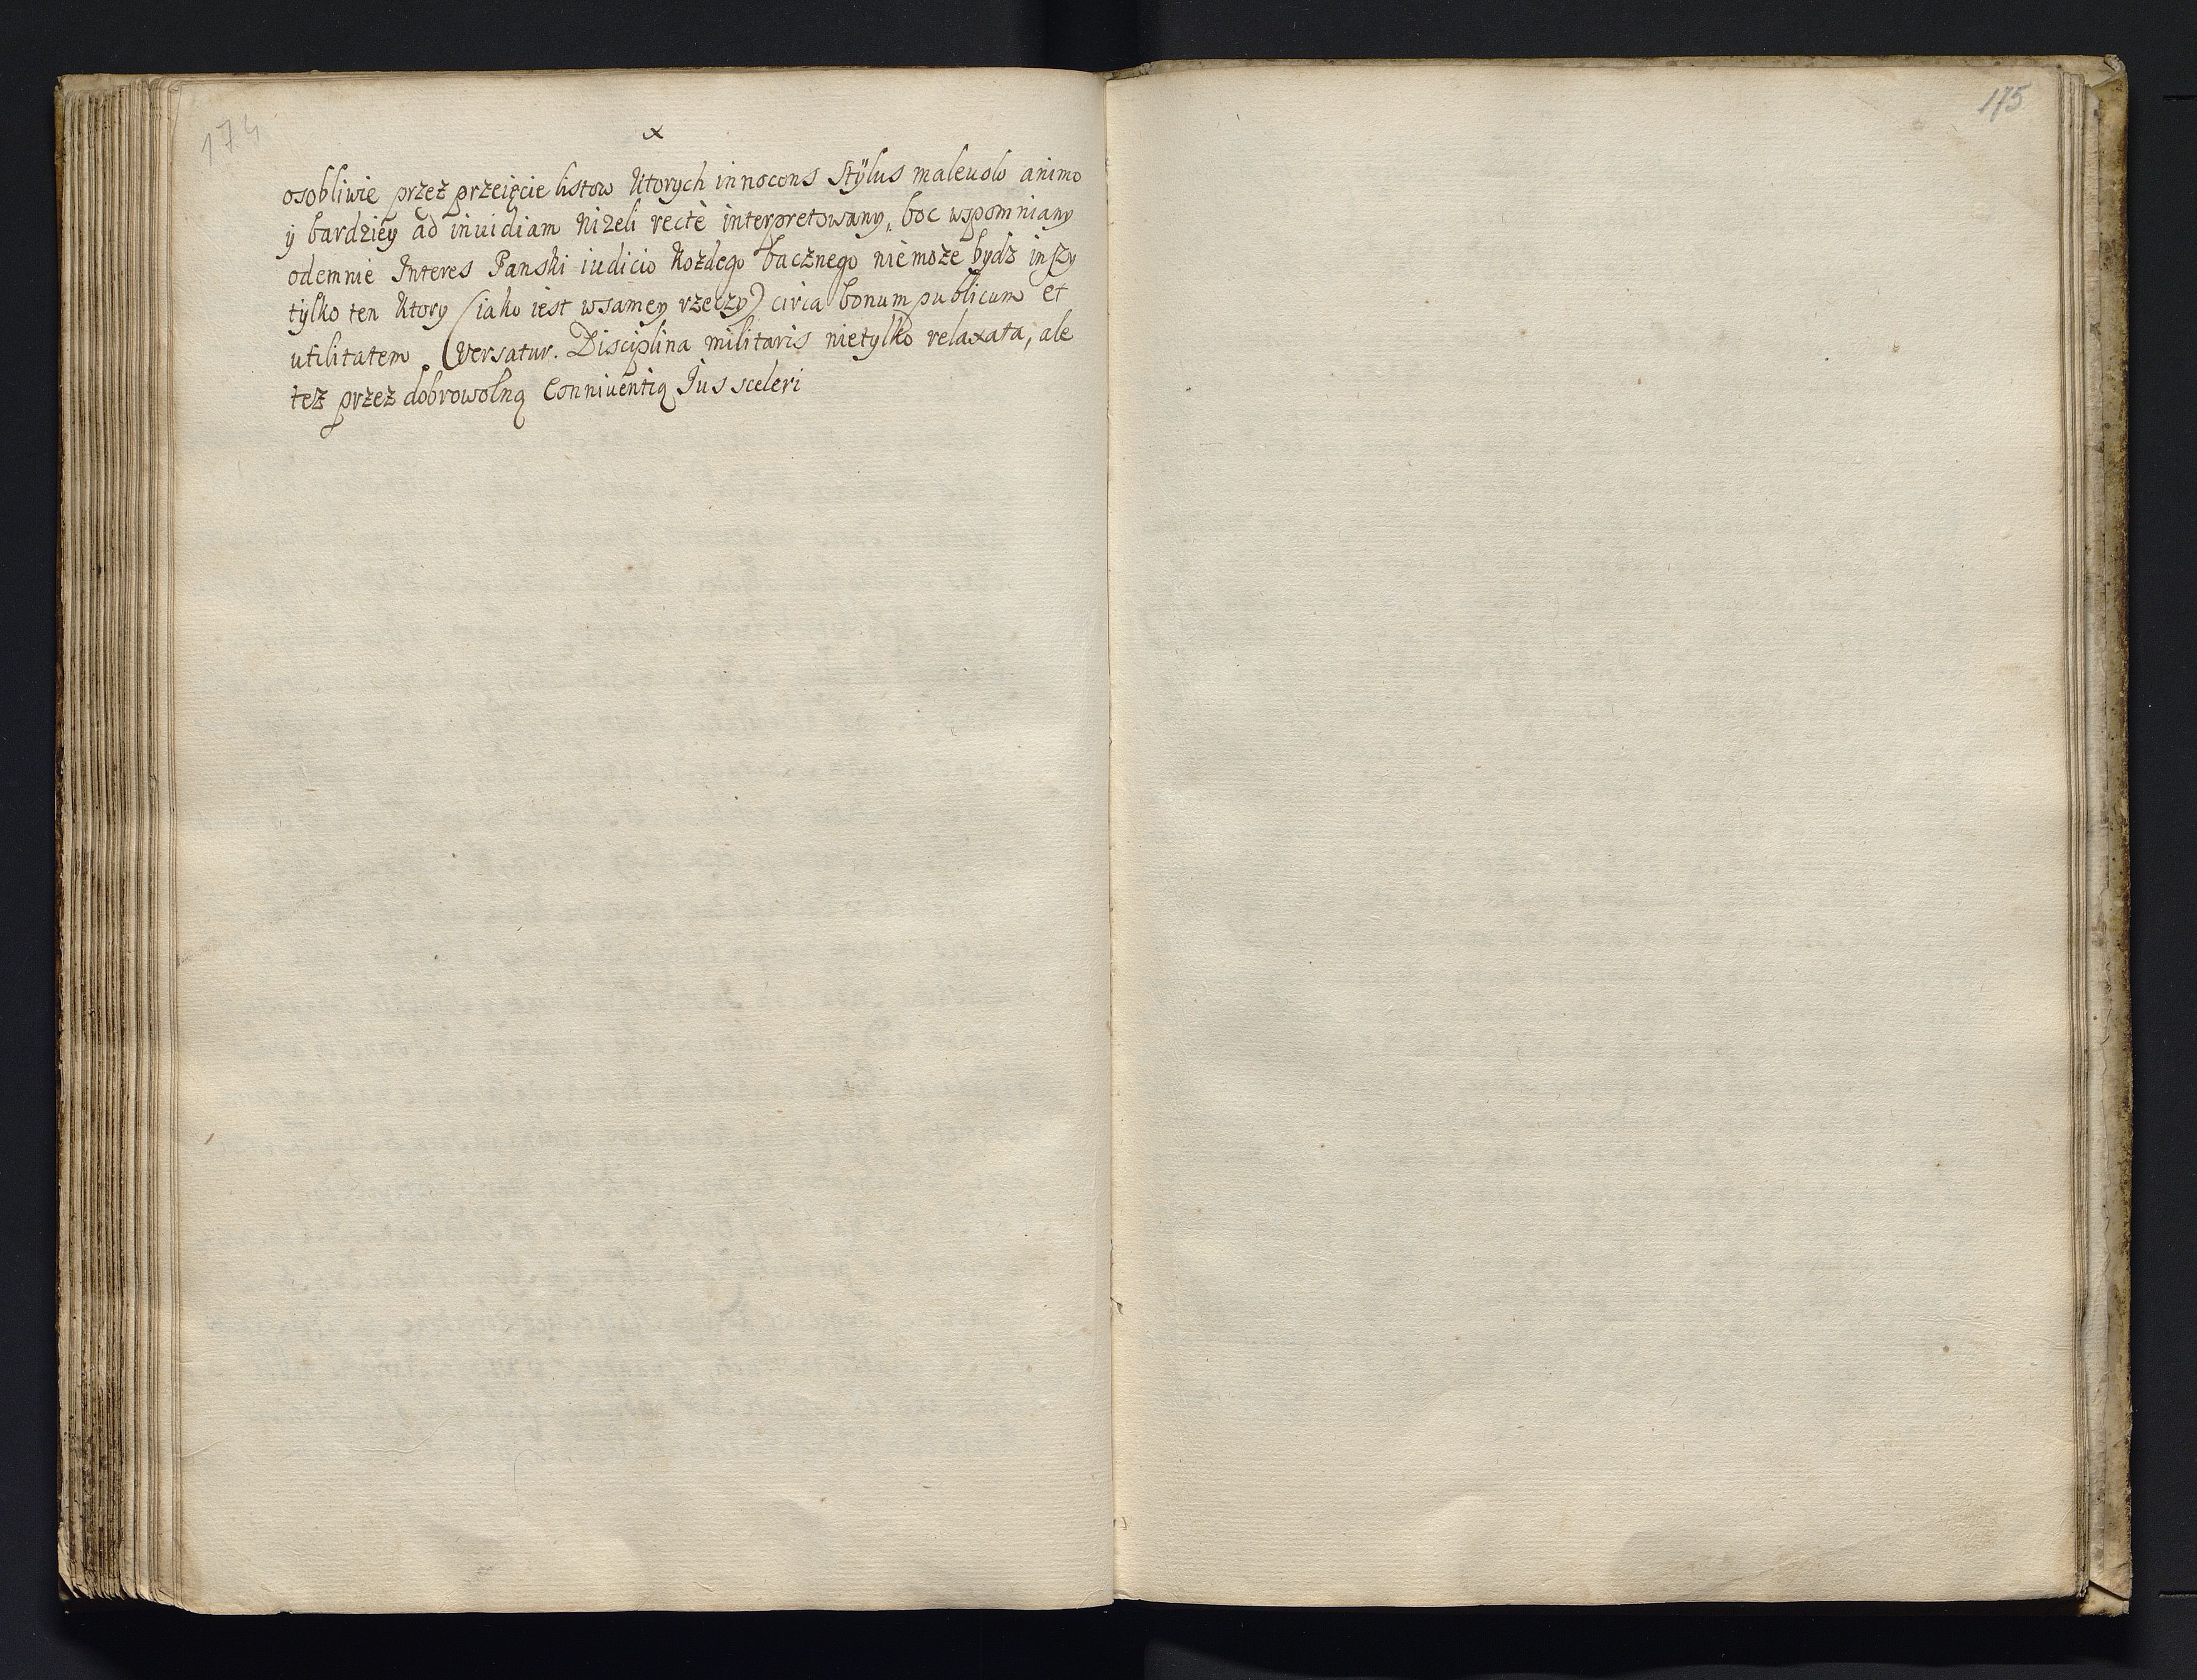 174
x
osobliwie przez przeięcie listow ktorych innocons stÿlus maleuolo animo
ÿ bardziey ad inuidiam niżeli rectè interpretowany, boc wspomniany
odemnie Interes Panski iudicio każdego bacznego niemoże bydz inszy
tylko ten ktory (iako iest wsamey rzeczy) circa bonum publicum et
utilitatem versatur. Disciplina militaris nietylko relaxata, ale
też przez dobrowolną Conniuentią Jus sceleri
175